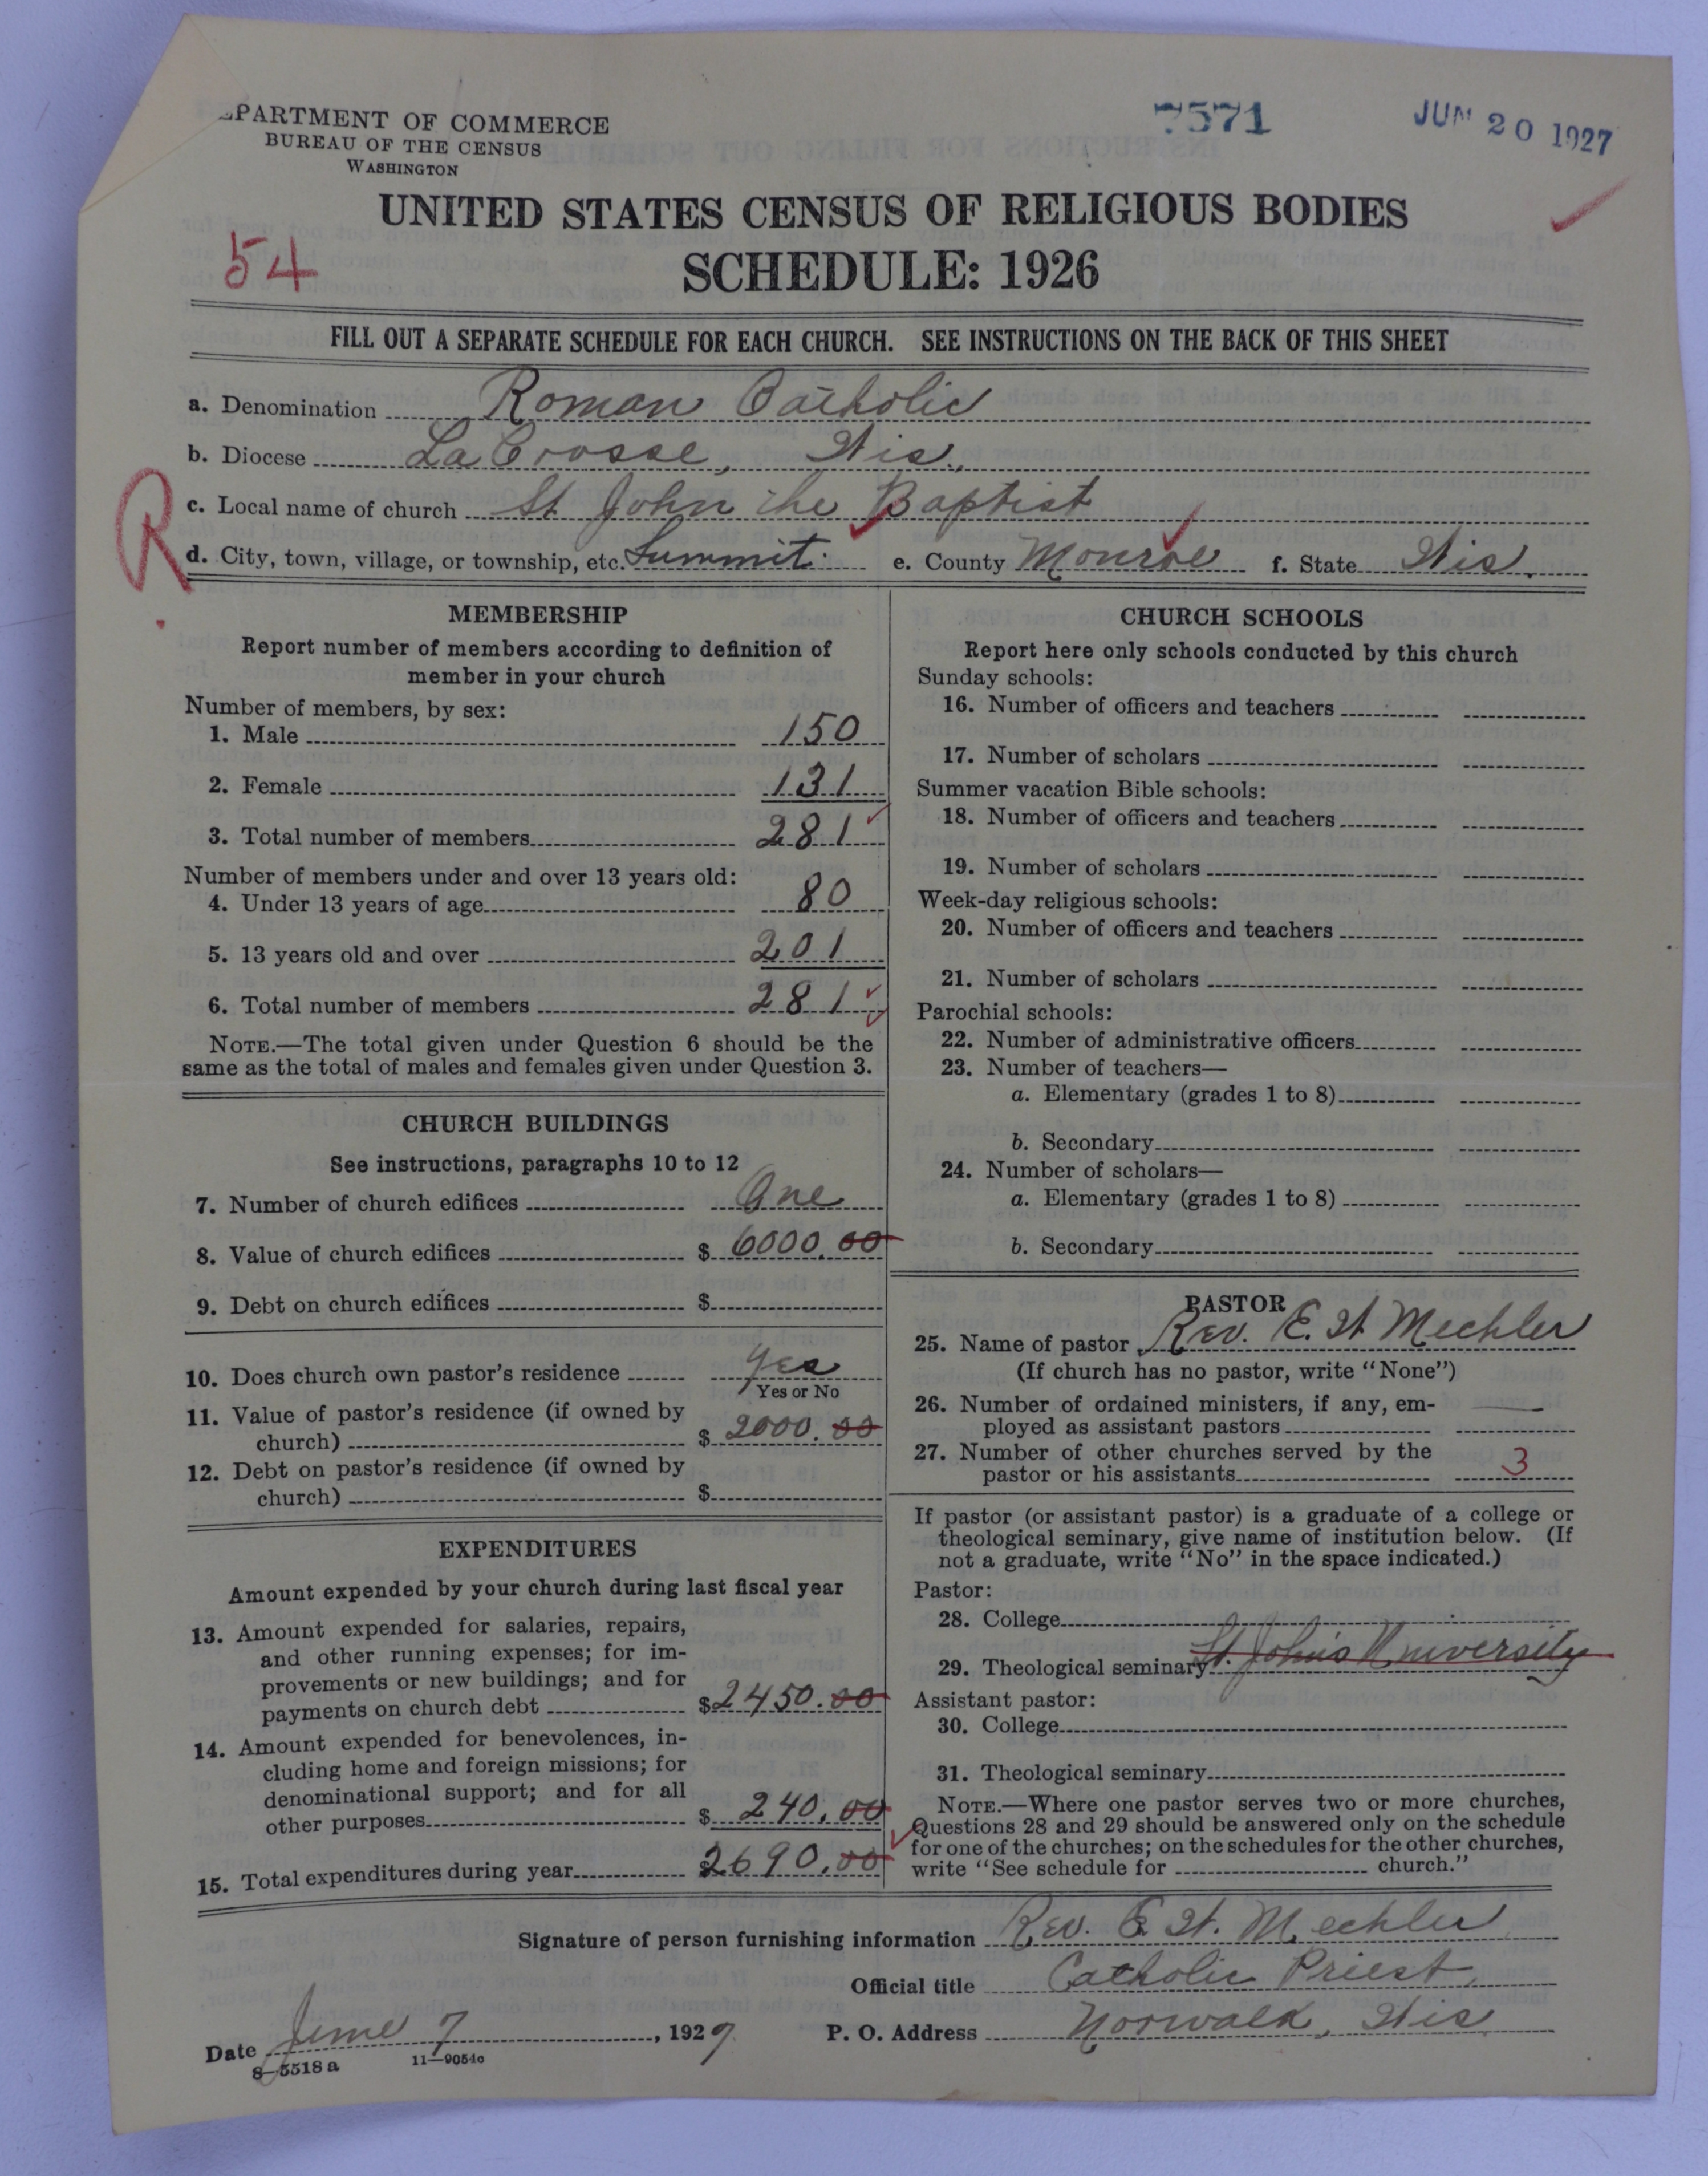 DEPARTMENT OF COMMERCE
BUREAU OF THE CENSUS
WASHINGTON
7571
JUN 20 1927
UNITED STATES CENSUS OF RELIGIOUS BODIES
54
SCHEDULE: 1926
FILL OUT A SEPARATE SCHEDULE FOR EACH CHURCH. SEE INSTRUCTIONS ON THE BACK OF THIS SHEET
a. Denomination Roman Catholic
b. Diocese La Crosse, Wis.,
R
c. Local name of church St John the Baptist
d. City, town, village, or township, etc. Summit. e. County Monroe f. State Wis.
MEMBERSHIP
Report number of members according to definition of
member in your church
Number of members, by sex:
1. Male 150
2. Female 131
3. Total number of members 281
Number of members under and over 13 years old:
4. Under 13 years of age 80
5. 13 years old and over 201
6. Total number of members 281
NOTE.—The total given under Question 6 should be the
same as the total of males and females given under Question 3.
CHURCH BUILDINGS
See instructions, paragraphs 10 to 12
7. Number of church edifices One
8. Value of church edifices $ 6000.00
9. Debt on church edifices $
10. Does church own pastor's residence Yes
Yes or No
11. Value of pastor's residence (if owned by
church) $ 2000.00
12. Debt on pastor's residence (if owned by
church) $
EXPENDITURES
Amount expended by your church during last fiscal year
13. Amount expended for salaries, repairs,
and other running expenses; for im-
provements or new buildings; and for
payments on church debt $2450.00
14. Amount expended for benevolences, in-
cluding home and foreign missions; for
denominational support; and for all
other purposes $ 240.00
15. Total expenditures during year $2690.00
CHURCH SCHOOLS
Report here only schools conducted by this church
Sunday schools:
16. Number of officers and teachers
17. Number of scholars
Summer vacation Bible schools:
18. Number of officers and teachers
19. Number of scholars
Week-day religious schools:
20. Number of officers and teachers
21. Number of scholars
Parochial schools:
22. Number of administrative officers
23. Number of teachers—
a. Elementary (grades 1 to 8)
b. Secondary
24. Number of scholars—
a. Elementary (grades 1 to 8)
b. Secondary
PASTOR
25. Name of pastor Rev. E. W Mechler
(If church has no pastor, write "None")
26. Number of ordained ministers, if any, em-
ployed as assistant pastors —
27. Number of other churches served by the
pastor or his assistants 3
If pastor (or assistant pastor) is a graduate of a college or
theological seminary, give name of institution below. (If
not a graduate, write "No" in the space indicated.)
Pastor:
28. College
29. Theological seminary St. John's University
Assistant pastor:
30. College
31. Theological seminary
NOTE.—Where one pastor serves two or more churches,
Questions 28 and 29 should be answered only on the schedule
for one of the churches; on the schedules for the other churches,
write "See schedule for church."
Signature of person furnishing information Rev. E. W. Mechler
Official title Catholic Priest.
Date June 7, 1927 P. O. Address Norwalk, Wis
8-5518a 11—9054c